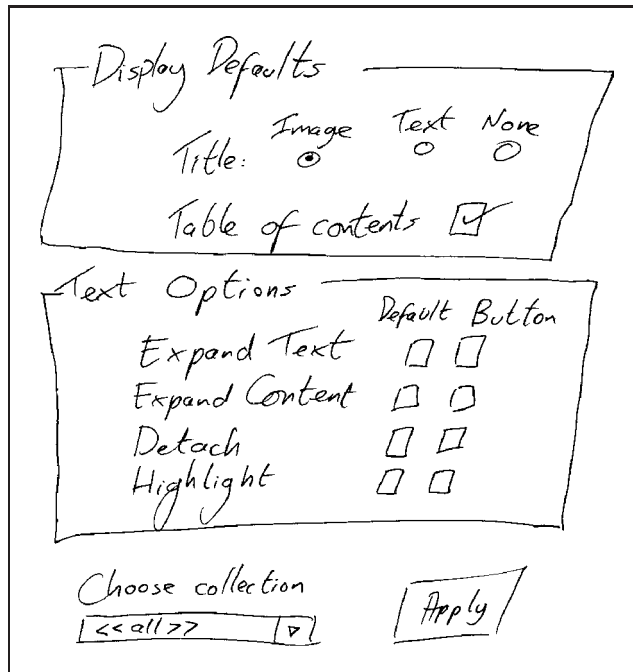 Display Defaults
Image Text None
Title:
Table of contents
Text Options
Default Button
Expand Text
Expand Content
Detach
Highlight
Choose collection
<<all>>
Apply